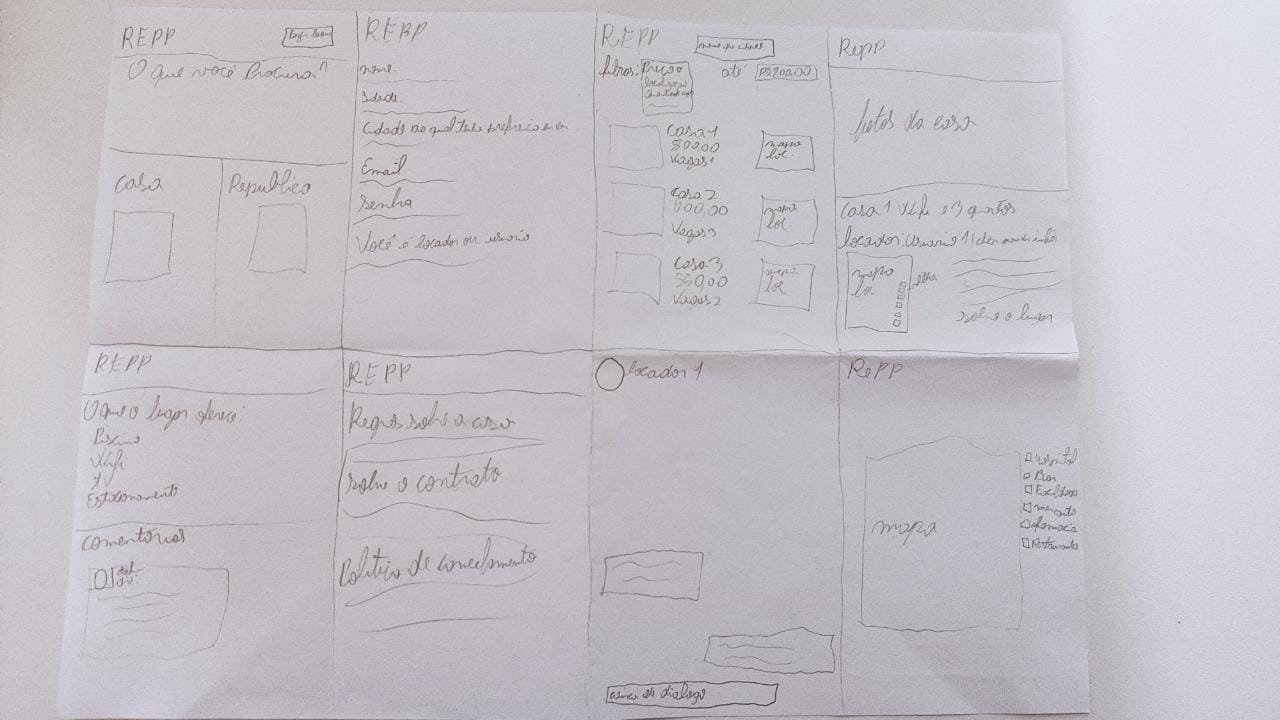 REPP
O que você Procura?
Casa
Republica
REPP
nome
Idade
Cidade ao qual
Email
Senha
Você é locador ou usuario
REPP
nome da cidade
filtros: Preço
até
R$800,00
Casa 1
800,00
Vagas 1
mapa
loc.
Casa 2
Vagas 3
mapa
loc.
Casa 3
550,00
Vagas 2
mapa
loc
Repp
fotos da casa
Casa 1 Wifi e 3 quartos
locador: Usuario 1
mapa
loc
sobre o lugar
REPP
O que o lugar oferece:
Piscina
Wifi
TV
Estacionamento
Comentários
REPP
Regras sobre a casa
Sobre o contrato
Politica de cancelamento
locador 1
caixa de dialogo
RePP
mapa
Hospital
Bar
mercado
farmacia
Restaurantes